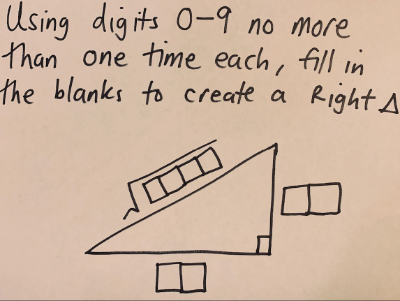 Using digits 0-9 no more
than one time each, fill in
the blanks to create a Right △